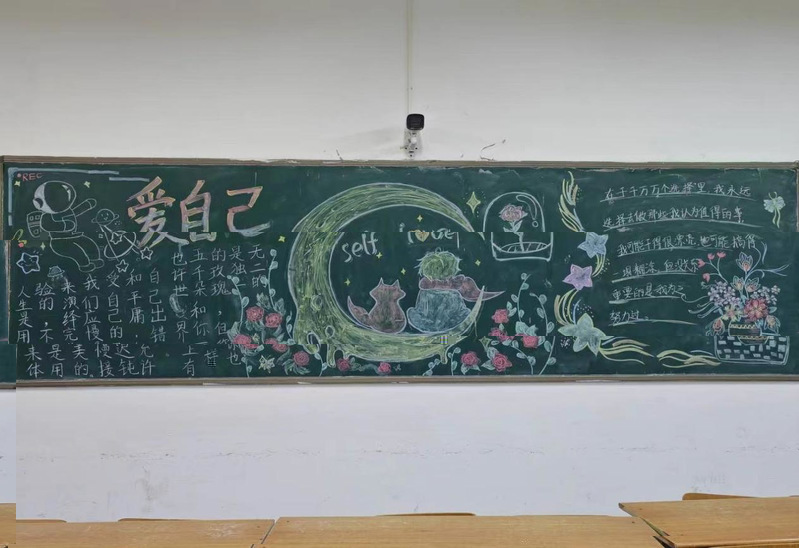 REC
爱自己
人生是用来体
验的,不是用
来演绎完美的
我们应慢慢接
受自己的迟钝
和平庸,允许
自己出错
也许世界上有
五千朵和你一样
的玫瑰,但你也
是独一
无二的
self
在千千万万个选择里,我永远
选择去做那些我认为值得的事
我可能干得很漂亮,也可能搞得
一塌糊涂,但没
重要的是我为
努力过。